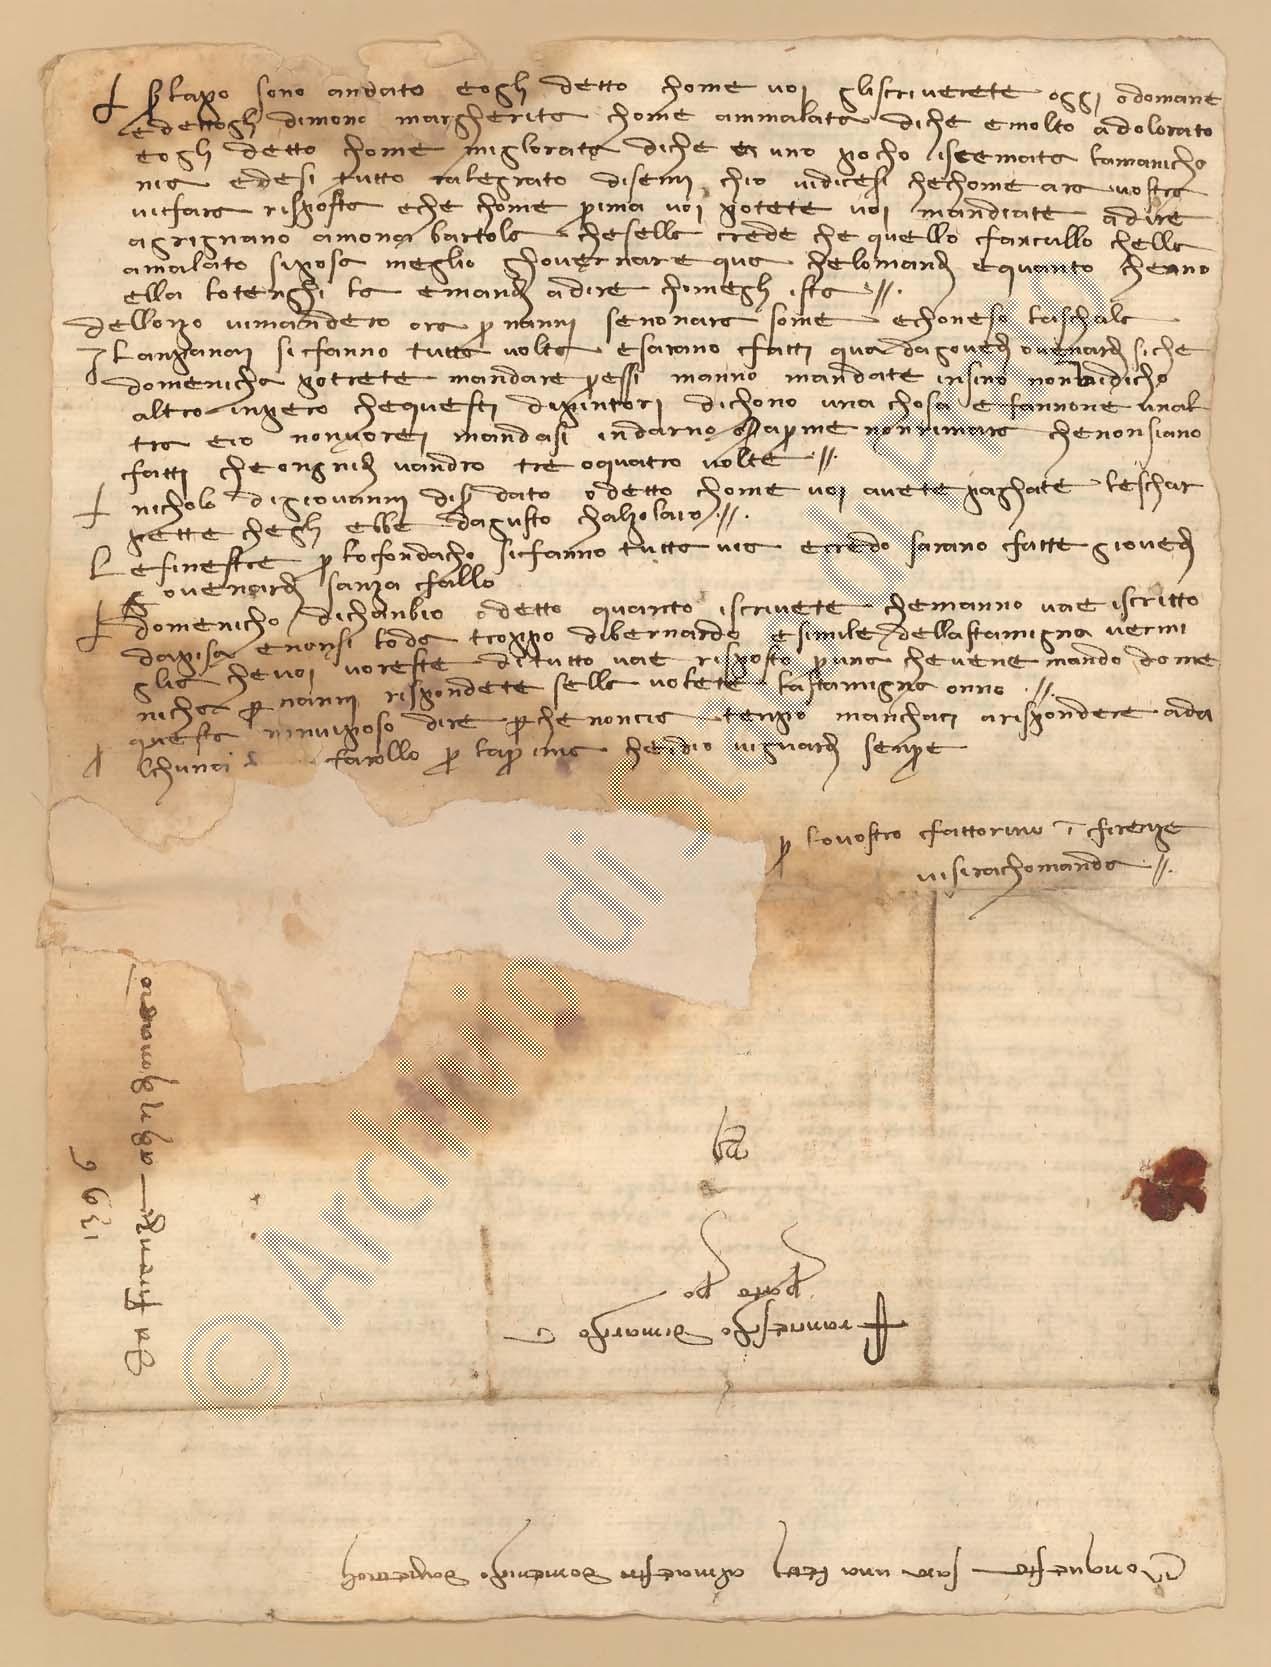 Ser lapo sono andato e ogli detto chome voi gli scriverete oggi o domane
e dettogli di mona margherita chome ammalata di che e molto adolorato
e ogli detto chome miglorata di che e uno pocho iscemata la manicho
nia ed esi tutto ralegrato disemi chio vi dicesi che chome ara vostra
vi fara risposta e che chome prima voi potete voi mandiate a dire
a grignano a mona bartola che sella crede che quello fanciullo chella
amalato si posa meglio ghovernare qua che lo mandi e quanto che no
ella lo tenghi la e mandi a dire chome gli ista
dellorzo vi mandero ora per nanni se nonara some e chon eso la schala
I lanpanai si fanno tutta volta e sarano fatti qua da giovedi o venardi si che
domenicha potrete mandare per essi manno mandate insino non vi dicho
altro inpero che questi dipintori dichono una chosa e fannone unal
tra e io non vorei mandasi indarno da per me non rimara che non siano
fatti che ongni di vandro tre o quatro volte
nicholo di giovanni di ser dato o detto chome voi avete paghate le schar
pette chegli ebbe da gusto chalzolaio
Le finestre per lo fondacho si fanno tutta via e credo sarano fatte giovedi
o venardi sanza fallo
domenicho di chanbio o detto quanto iscrivete che manno vae iscritto
da pisa e nonsi loda troppo di bernardo e simile della stamigna vermi
glia che voi voreste di tutto vae risposto per una che vene mando dome
nicha per nanni rispondete sella volete la stamigna onno
questa non vi poso dire per che non cia tenpo manchaci a rispondere ada
lchuna farollo per la prima che idio vi guardi senpre
per lo vostro fattorino in firenze
vi si rachomanda
franciescho di marcho
prato
1396
da firenze a di